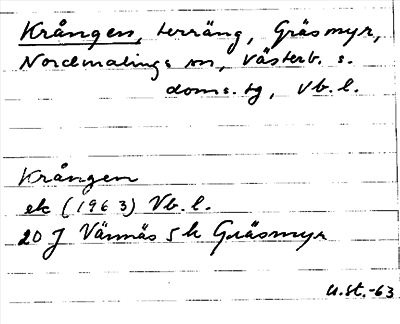 Krången, terräng, Gräsmyr,
Nordmalings sn, Västerb. s.
doms. tg, Vb. l.
Krången
ek (1963) Vb. l.
20 J Vännäs 5 h Gräsmyr
U.St.-63